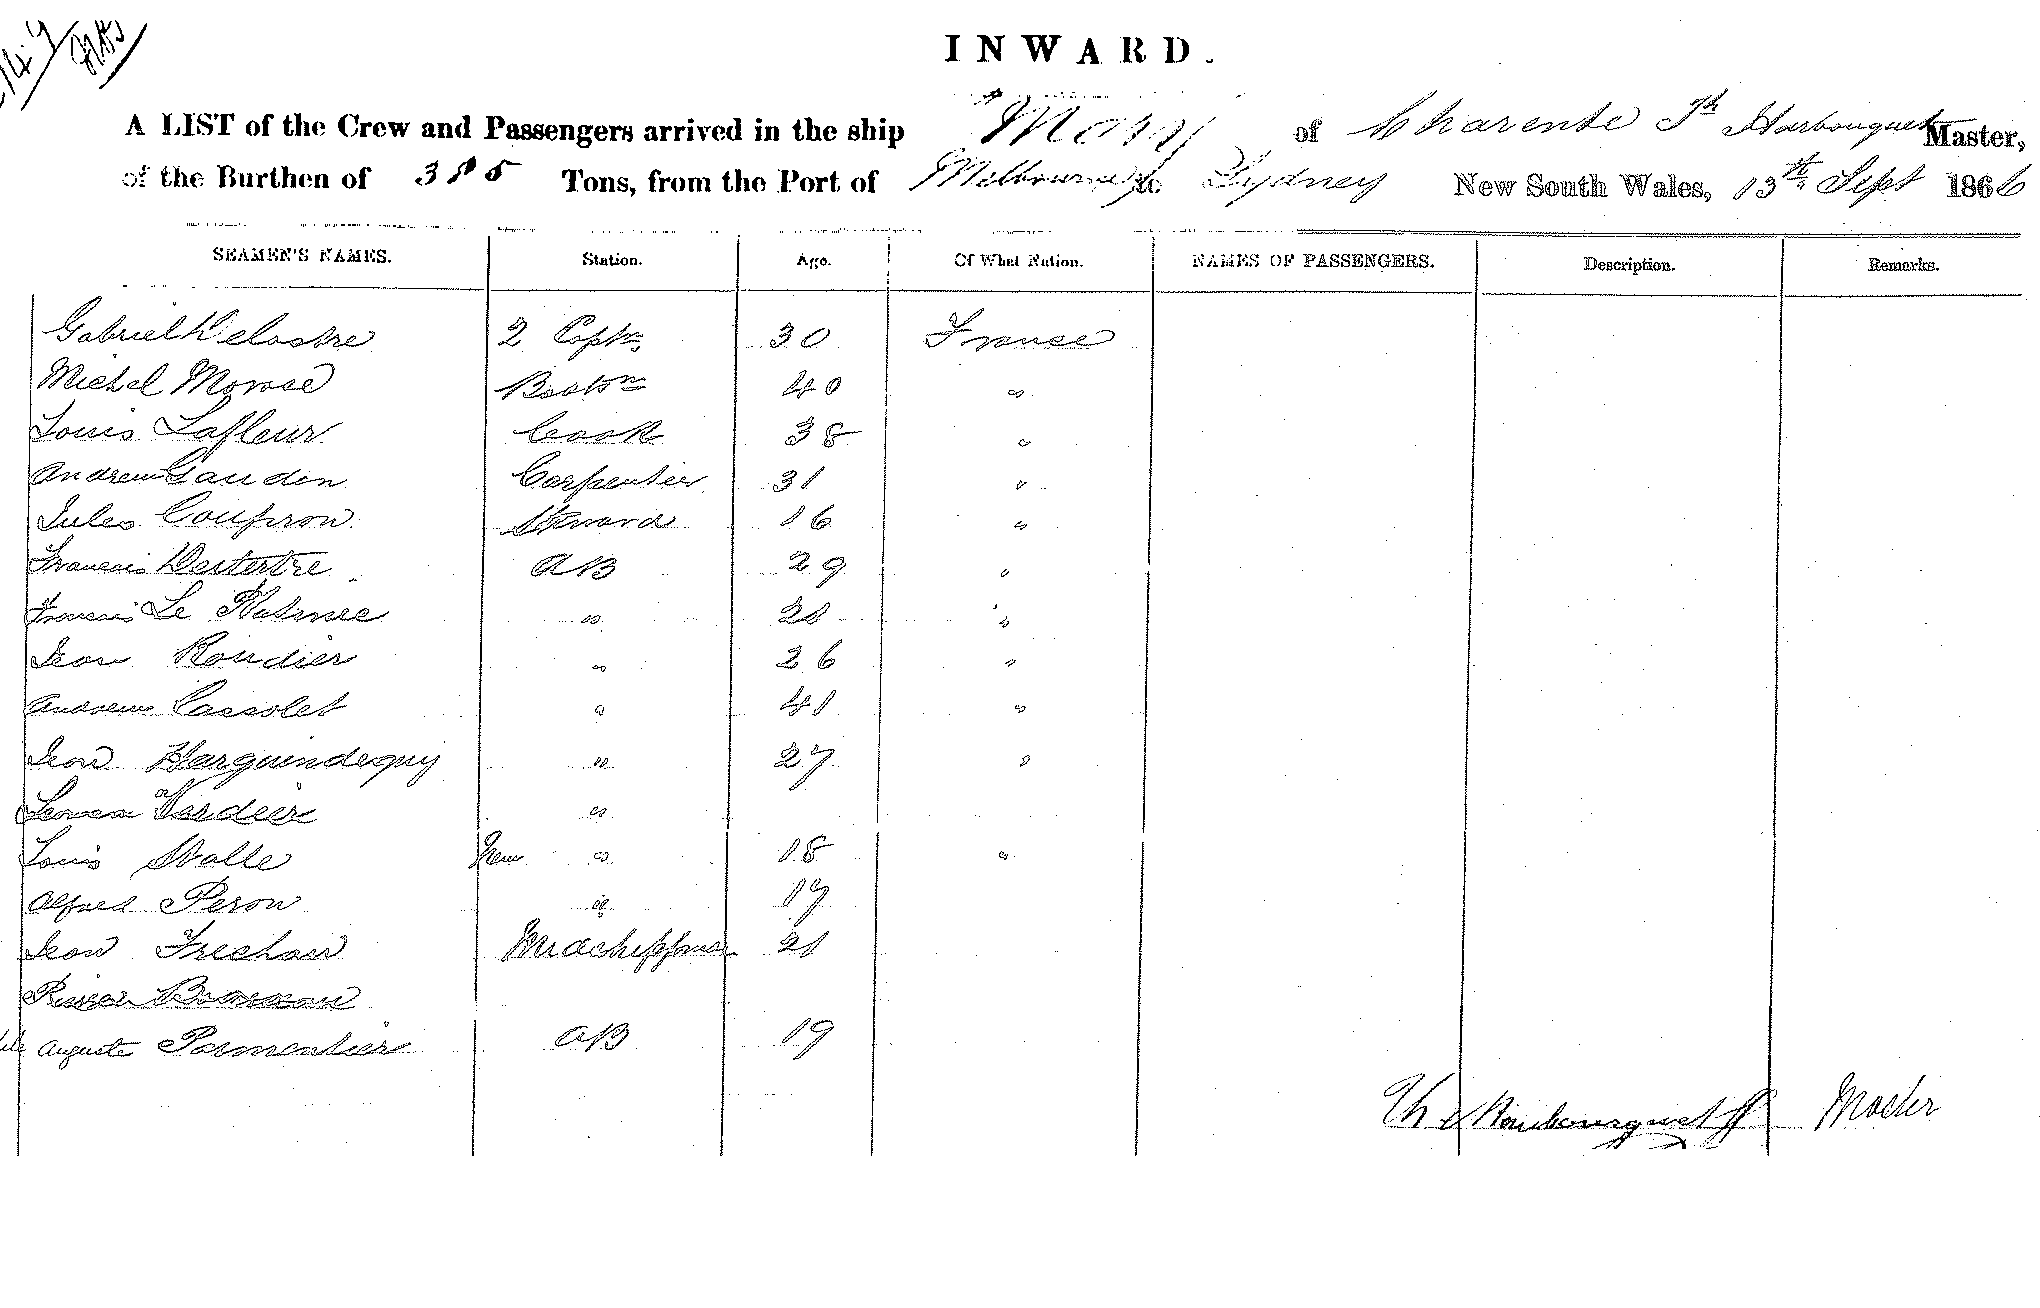 INWARD.
A LIST of the Crew and Passengers arrived in the ship Mary of Charente Th Harbouquet Master,
of the Burthen of 385 Tons, from the Port of Melbourne to Sydney New South Wales, 13th Sept 1866
SEAMEN'S NAMES. Station. Age. Of What Nation. NAMES OF PASSENGERS. Description. Remarks.
Gabriel Delastre 2 Captn 30 France
Michel Morase Boatsn 40 "
Louis Lafleur Cook 38 "
Andrew Gaudin Carpentier 31 "
Jules Coupron Steward 16 "
Francois Destertre AB 29 "
Francois Le " 21 "
Jean Roudier " 26 "
Andrew Cassolet " 41 "
Jean Harguindeguy " 27 "
Verdier "
Louis Walle " 18 "
Alfred Peron " 17
Jean Frechou 21
Auguste Parmentier AB 19
Master